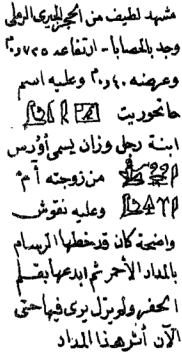 مشهد لطيف من الحجر الجيرى الرملى
وجد بالعصابا - ارتفاعه ٧٢٥ر٠م
وعرضه ٤٠ر٠م وعليه اسم
حاتحوريت
ابنة رجل وزان يسمى أوزرس
من زوجته آم
وعليه نقوش
واضحة كان قد خططها الرسام
بالمداد الأحمر ثم ابدعها بقلم
الحفر ولم يزل يرى فيها حتى
الآن أثر هذا المداد